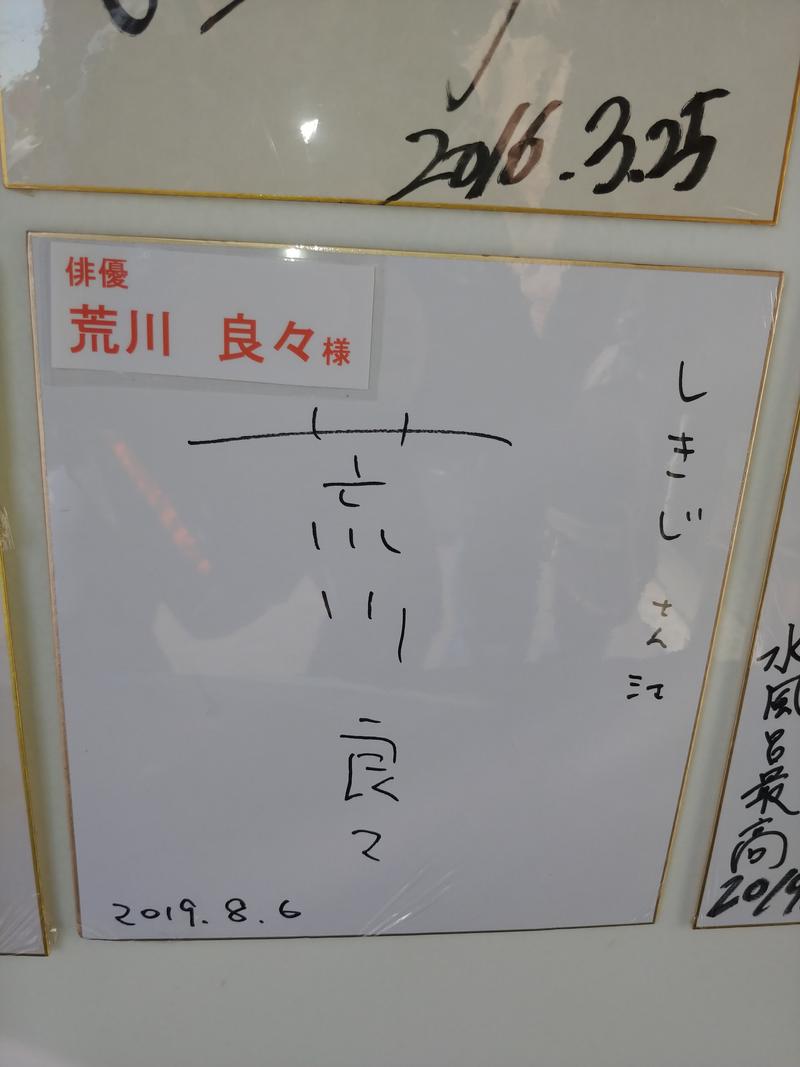 2016.3.25
俳優
荒川 良々様
しきじ さん江
荒川 良々
2019.8.6
水風呂最高
2019